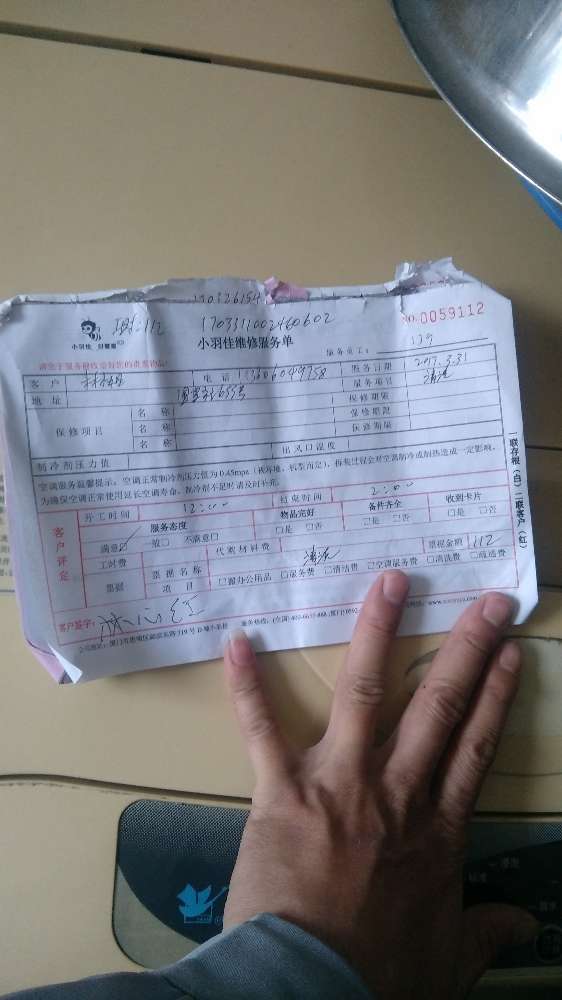 170326154
170331002460602
NO.0059112
小羽佳 好管家
小羽佳维修服务单
服务员工:
客户 电话 服务日期 2017.3.31
地址 服务项目 清洗
保修项目
名称 保修期限
名称 保修期限
名称 保修期限
制冷剂压力值 出风口温度
空调服务温馨提示:空调正常制冷剂压力值为0.45mpa(视环境、机型而定),拆装过程会对空调制冷或制热造成一定影响,
为确保空调正常使用延长空调寿命,制冷剂不足时请及时补充。
一联存根(白)二联客户(红)
客户评定
开工时间 12:00 结束时间 2:00
服务态度 物品完好 备件齐全 收到卡片
满意 一般 不满意 是 否 是 否 是 否
工时费 代购材料费 清洗 票据金额 112
票据 票据名称
项目 办公用品 服务费 清洁费 空调服务费 清洗费 疏通费
客户签字: